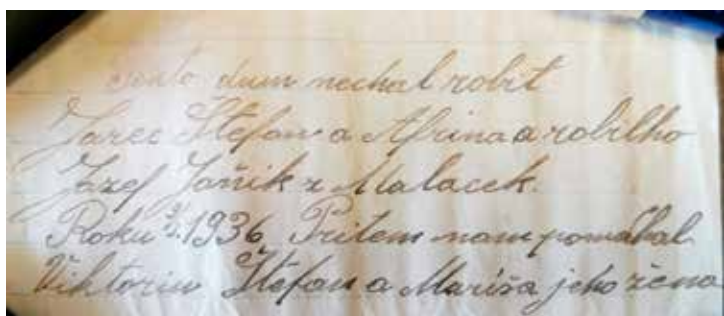 Tento dum nechal robit
Jarec Štefan a Afrina a robilho
Jozef Jaňik z Malacek.
Roku 1936 Pritem nam pomahal
Viktorin Štefan a Mariša jeho žena